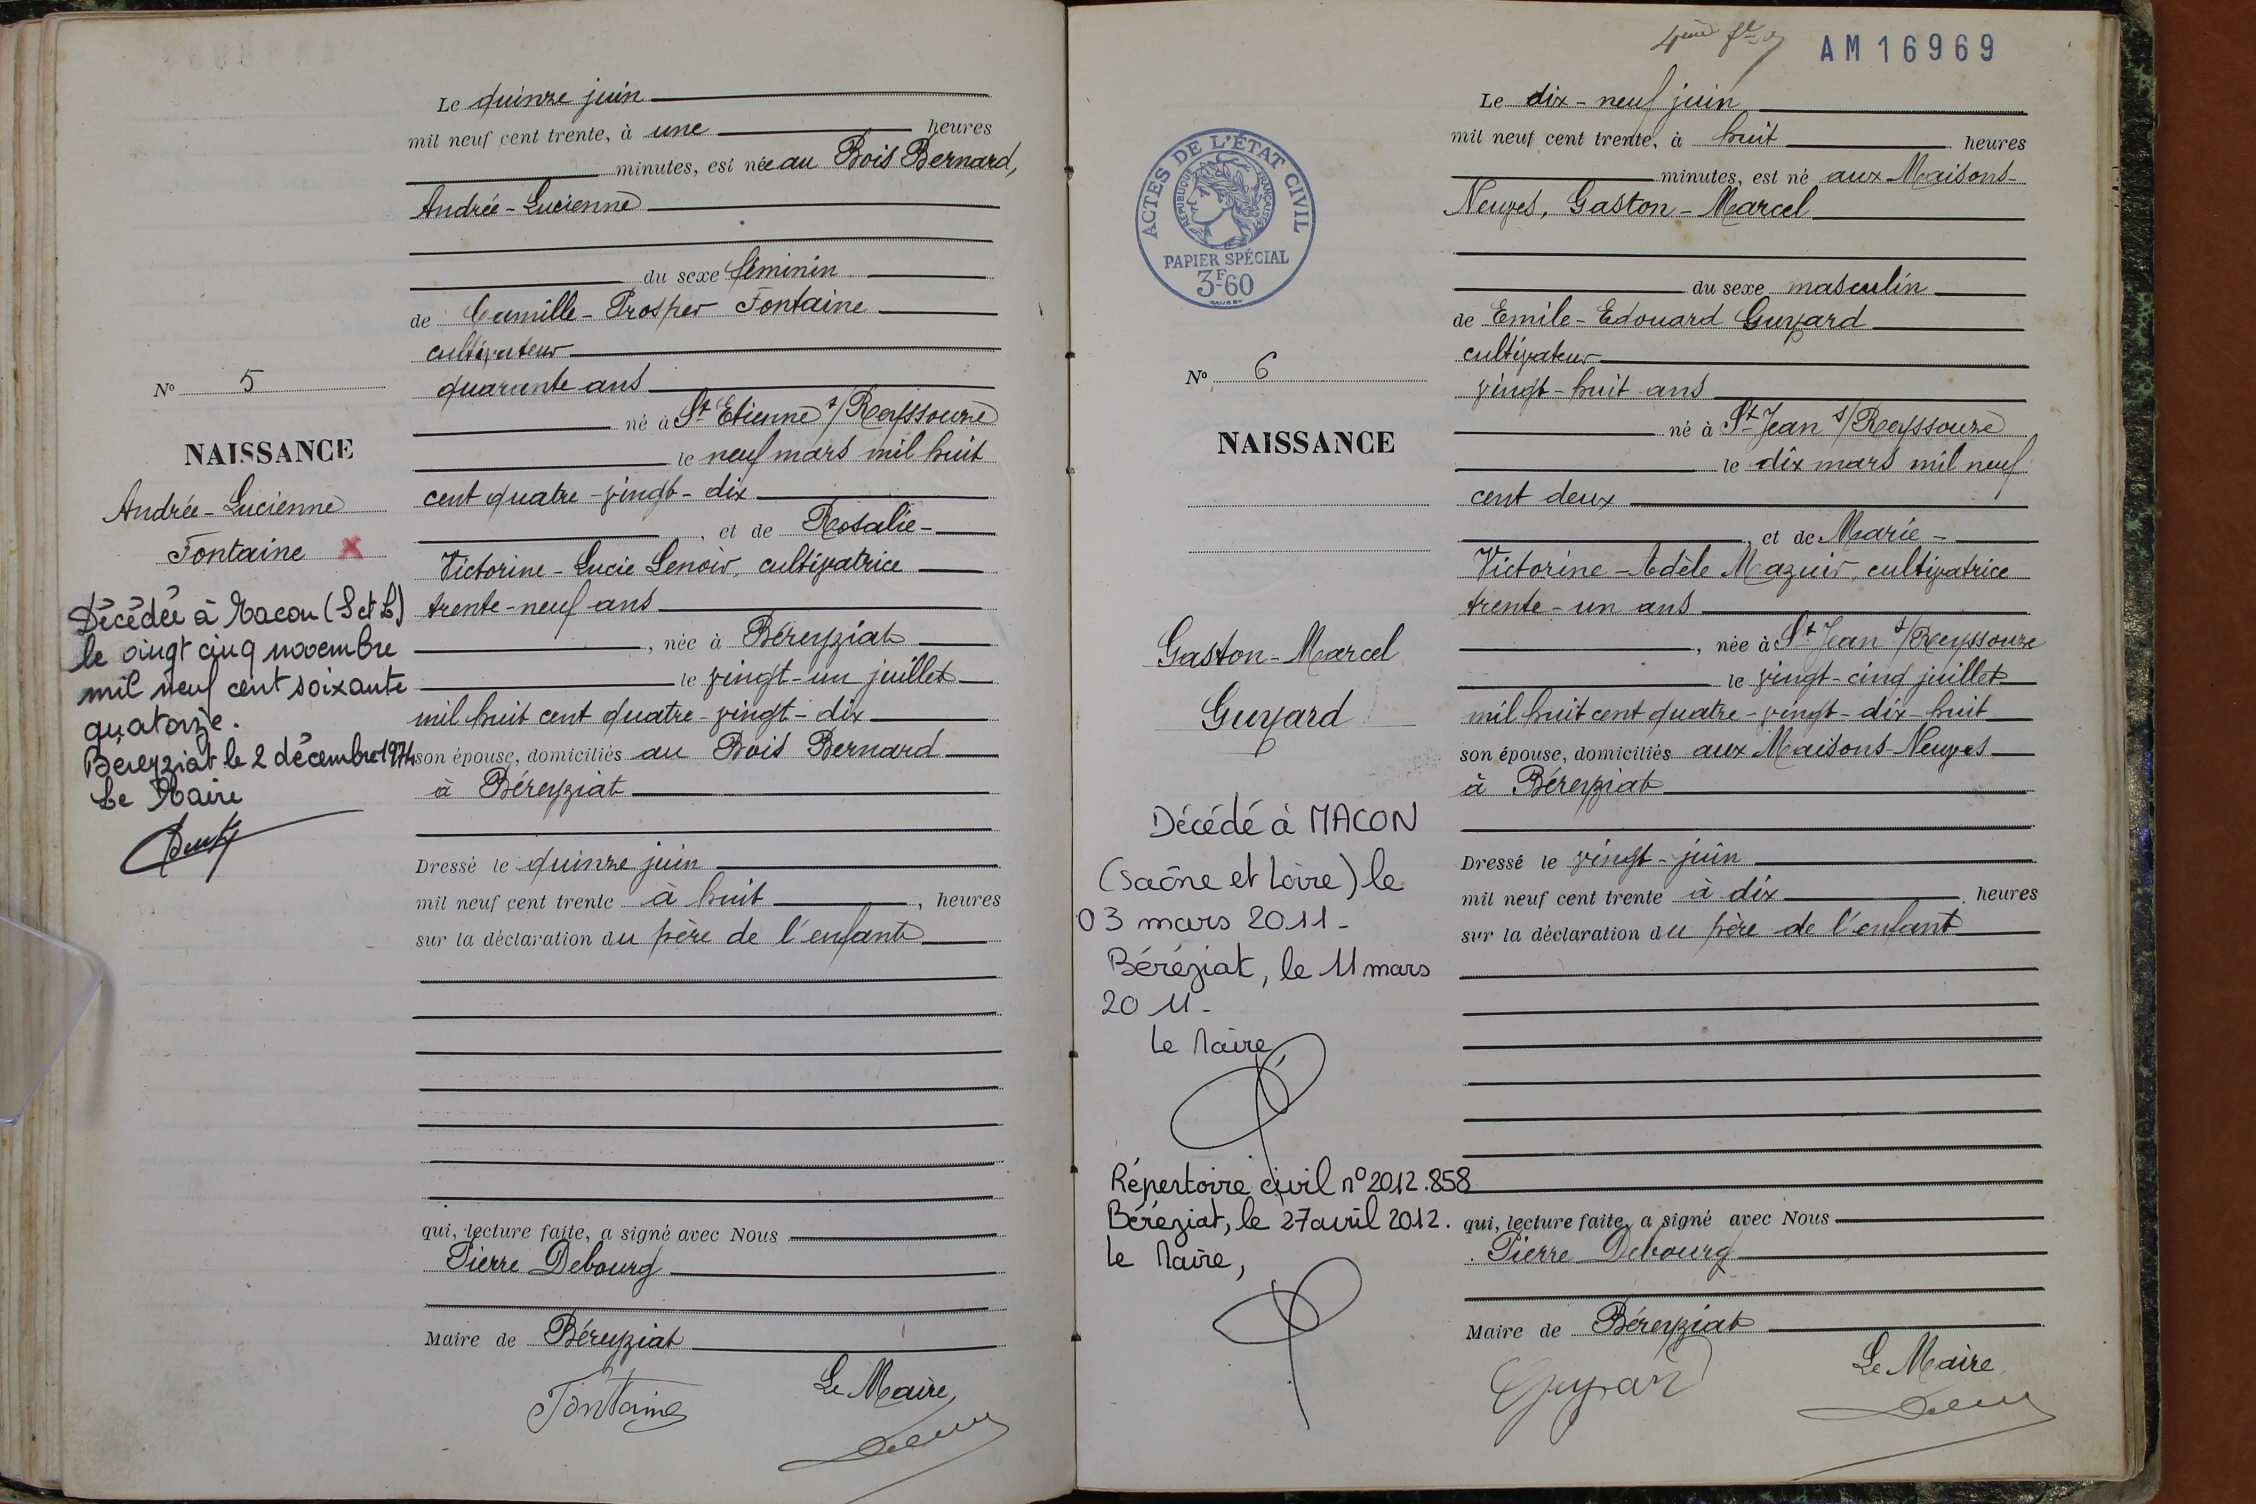 Le quinze juin
mil neuf cent trente, à une heures
minutes, est née au Bois Bernard,
Andrée-Lucienne
du sexe féminin
de Camille-Prosper Fontaine
cultivateur
quarante ans
né à St Etienne s/Reyssouze
le neuf mars mil huit
cent quatre-vingt-dix
, et de Rosalie-
Victorine-Lucie Lenoir, cultivatrice
trente-neuf ans
, née à Béreyziat
le vingt-un juillet
mil huit cent quatre-vingt-dix
son épouse, domiciliés au Bois Bernard
à Béreyziat
Dressé le quinze juin
mil neuf cent trente à huit , heures
sur la déclaration du père de l'enfant
qui, lecture faite, a signé avec Nous
Pierre Debourg
Maire de Béreyziat
Fontaine
Le Maire,
No 5
NAISSANCE
Andrée-Lucienne
Fontaine X
Décédée à Macon (S et L)
le vingt cinq novembre
mil neuf cent soixante
quatorze.
Béreyziat le 2 décembre 1974
Le Maire
AM16969
ACTES DE L'ÉTAT CIVIL
RÉPUBLIQUE FRANÇAISE
PAPIER SPÉCIAL
3F60
No 6
NAISSANCE
Gaston-Marcel
Guyard
Décédé à MACON
(Saône et Loire) le
03 mars 2011-
Béréziat, le 11 mars
2011-
Le Maire,
Répertoire civil n°2012.858
Béréziat, le 27 avril 2012.
Le Maire,
Le dix-neuf juin
mil neuf cent trente, à huit heures
minutes, est né aux Maisons-
Neuves, Gaston-Marcel
du sexe masculin
de Emile-Edouard Guyard
cultivateur
vingt-huit ans
né à St Jean s/Reyssouze
le dix mars mil neuf
cent deux
, et de Marie-
Victorine-Adèle Mazuir, cultivatrice
trente-un ans
, née à St Jean s/Reyssouze
le vingt-cinq juillet
mil huit cent quatre-vingt-dix-huit
son épouse, domiciliés aux Maisons-Neuves
à Béreyziat
Dressé le vingt-juin
mil neuf cent trente à dix , heures
sur la déclaration du père de l'enfant
qui, lecture faite, a signé avec Nous
Pierre Debourg
Maire de Béreyziat
Guyard
Le Maire